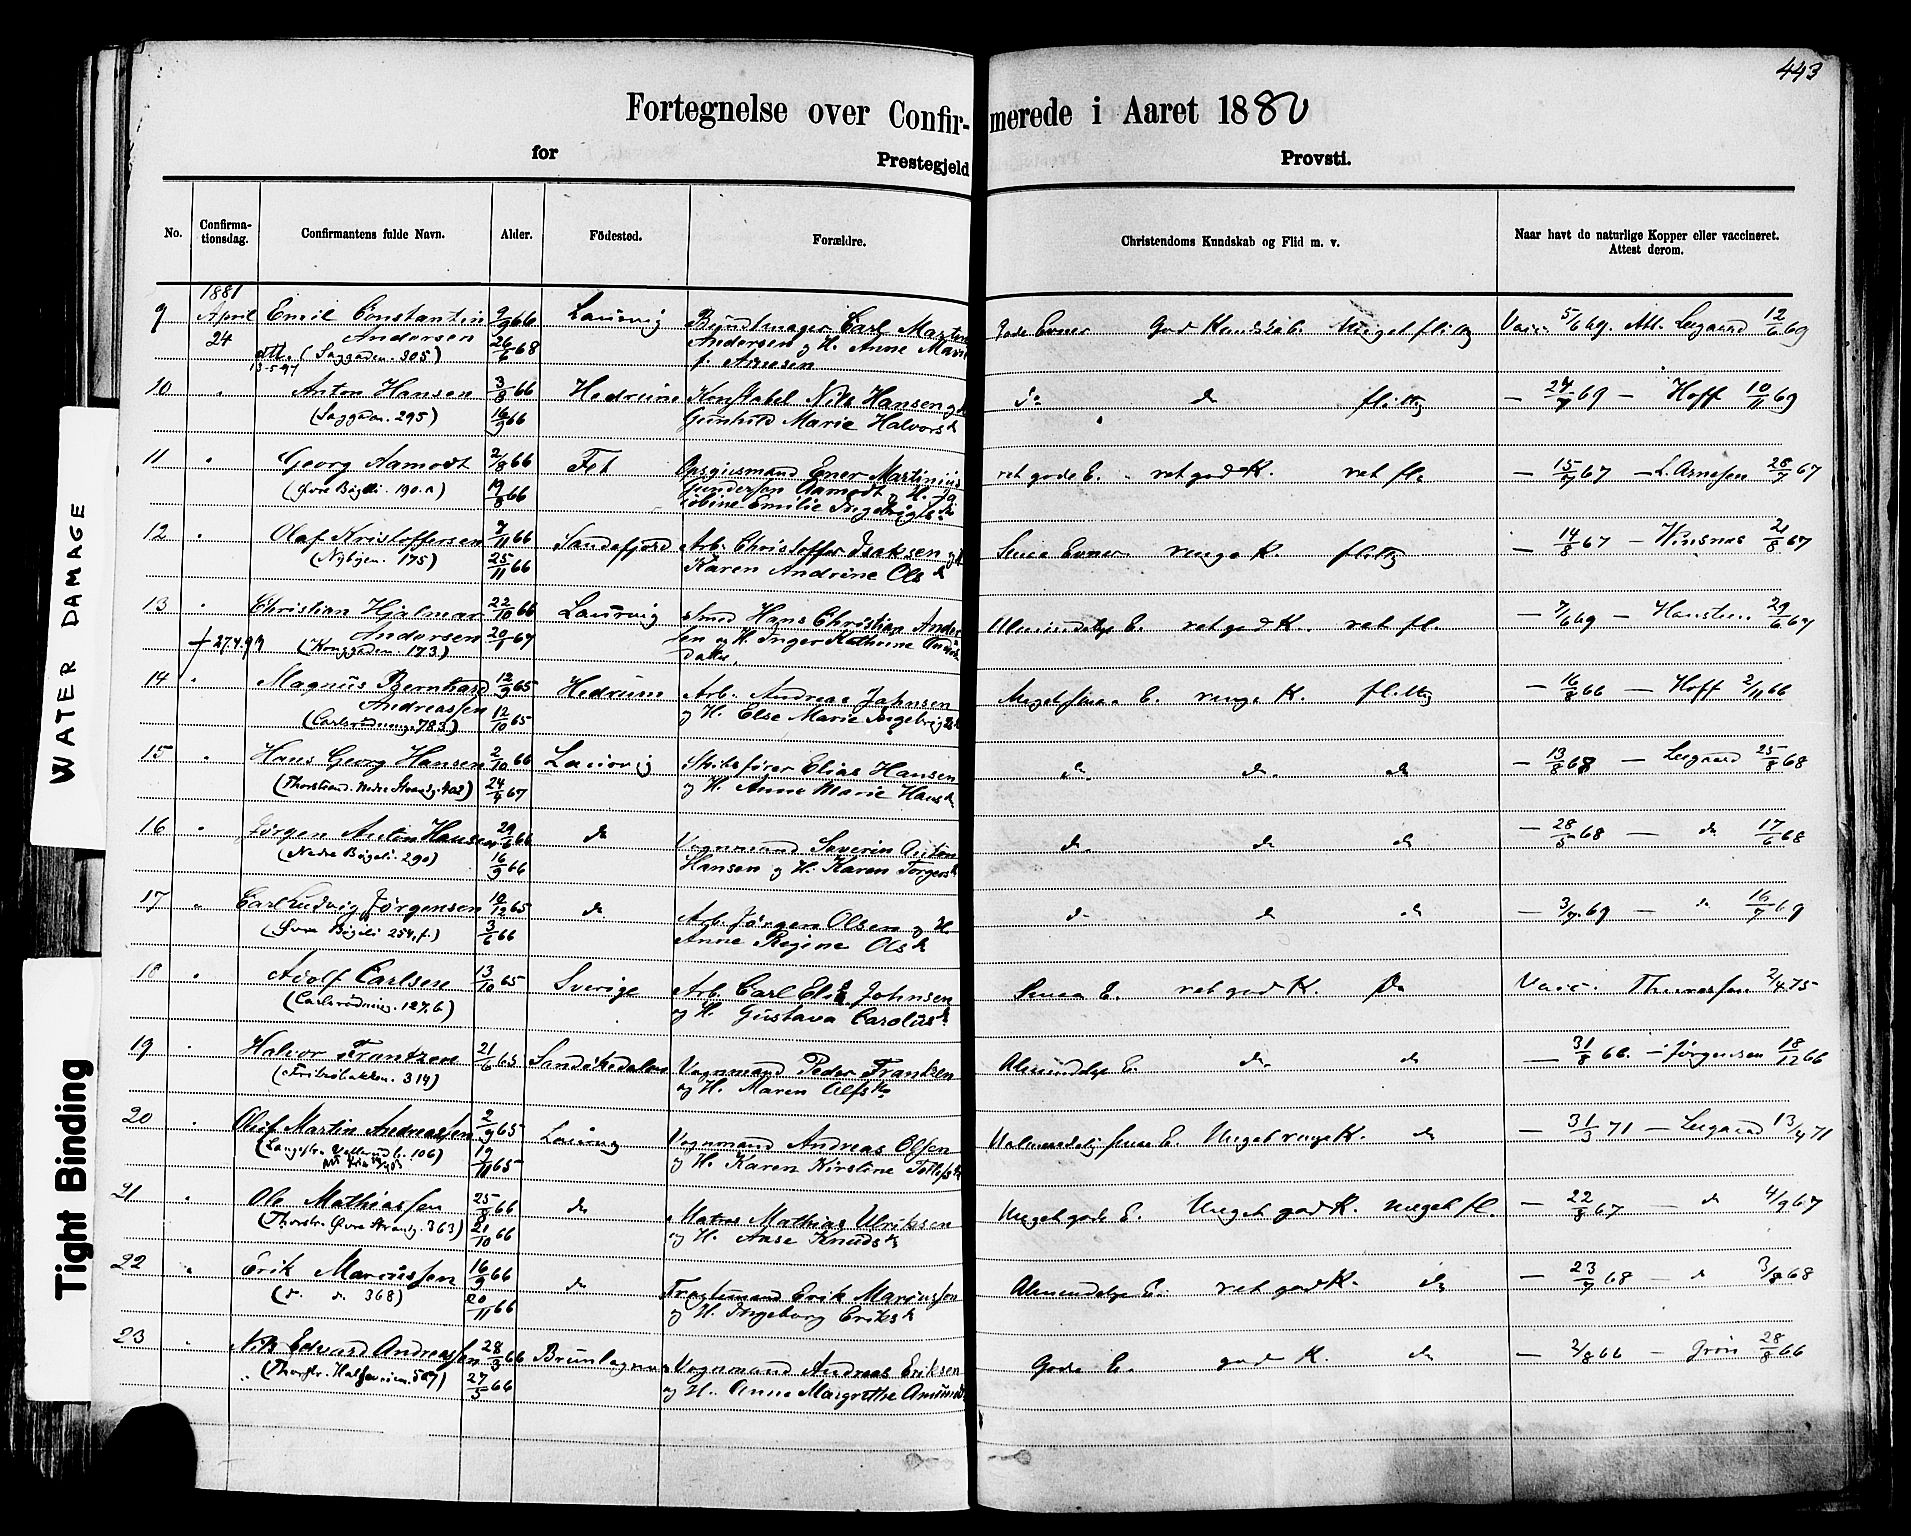 443
Fortegnelse over Confir- merede i Aaret 1880
for Prestegjeld Provsti.
No. Confirma-tionsdag. Confirmantens fulde Navn. Alder. Födested. Forældre. Christendoms Kundskab og Flid m. v. Naar havt de naturlige Kopper eller vaccineret. Attest derom.
1881
9 April Emil Constantin 2/9 66 Laurvig Bundtmager Carl Martin Gode Evner God Kundskab. Meget flittig Vacc. 5/6 69. Att. Leegaard 12/6 69
24 Andersen 26/6 68 Andersen og H. Anne Marie
att. (Laggaden. 305) f. Arnesen
13-5-97
10 " Anton Hansen 3/8 66 Hedrum Konstabel Nils Hansen og H. do do flittig — 27/7 69 — Hoff 10/11 69
(Laggaden. 295) 16/9 66 Gunhild Marie Halvorsd.
11 " Georg Aamodt 2/8 66 Fet Opsynsmand Ener Martinius ret gode E. ret god K. ret fl. — 15/7 67 — L. Arnesen 28/7 67
(Øvre Bøgeli. 190.a) 19/8 66 Gundersen Aamodt og H. Ja
cobine Emilie Ingebrigtsd.
12 " Olaf Kristoffersen 7/11 66 Sandefjord Arb. Christoffer Isaksen og H. Smaa Evner ringe K. flittig — 14/8 67 — Winsnes 21/8 67
(Nybyen. 175) 25/11 66 Karen Andrine Olsd.
13 " Christian Hjalmar 22/10 66 Laurvig Smed Hans Christian Ander Almindelige E. ret god K. ret fl. — 7/6 69 — 29/6 69
† 27.4.99 Andersen 20/1 67 sen og H. Inger Kathrine
(Kongegaden. 173.) datter.
14 " Magnus Bernhard 12/9 65 Hedrum Arb. Andreas Jahnsen Meget smaa E. ringe K. flittig — 16/8 66 — Hoff 2/11 66
Andreassen 12/10 65 og H. Else Marie Ingebrigtsd.
(Carlsrødning. 783.)
15 " Hans Georg Hansen 2/10 66 Laurvig Skibsfører Elias Hansen do do do — 13/8 68 — Leegaard 25/8 68
(Thorstrand. Nedre Strandg. 402) 24/4 67 og H. Anne Marie Hansd.
16 " Jørgen Anton Hansen 29/6 66 do Vognmand Severin Anton do do do — 28/5 68 — do 17/6 68
(Nedre Bøgeli. 290) 16/9 66 Hansen og H. Karen Torgersd.
17 " Carl Ludvig Jørgensen 10/12 65 do Arb. Jørgen Olsen og H. do do do — 3/7 69 — do 16/7 69
(Øvre Bøgeli 254.f.) 3/6 66 Anne Regine Olsd.
18 " Adolf Carlsen 13/10 65 Sverige Arb. Carl Johnsen Smaa E. ret god K. do Vacc. Thomassen 2/4 75
(Carlsrødning. 127.b) og H. Gustava Carolusd.
19 " Halvor Frantzen 21/6 65 Sandskedalen Vognmand Peder Frantzen Almindelige E. do do — 31/8 66. — Jørgensen 18/12 66
(Fribrobakken. 314) og H. Maren Alfsd.
20 " Oluf Martin Andreassen 2/9 65 Laurvig Vognmand Andreas Olsen Ualmindelig smaa E. Meget ringe K. do — 31/3 71 — Leegaard 13/4 71
(Langestr. 106) 19/11 65 og H. Karen Kirstine Tollefsd.
21 " Ole Mathiassen 25/8 66 do Matros Mathias Ulriksen Meget gode E. Meget god K. meget fl. — 22/8 67 — do 4/9 67
(Thorstr. Øvre Strandg. 363) 21/10 66 og H. Aase Knudsd.
22 " Erik Marcussen 16/9 66 do Fragtemand Erik Marcussen Almindelige E. ret god K. do — 23/7 68 — do 3/8 68
(do. do. 368) 20/11 66 og H. Ingeborg Eriksd.
23 " Nils Edvard Andreassen 28/3 66 Brunlagnæs Vognmand Andreas Eriksen Gode E. god K. do — 2/8 66 — Grøn 28/8 66
(Thorstr. 567) 27/5 66 og H. Anne Margrethe Amunds
WATER DAMAGE
Tight Binding